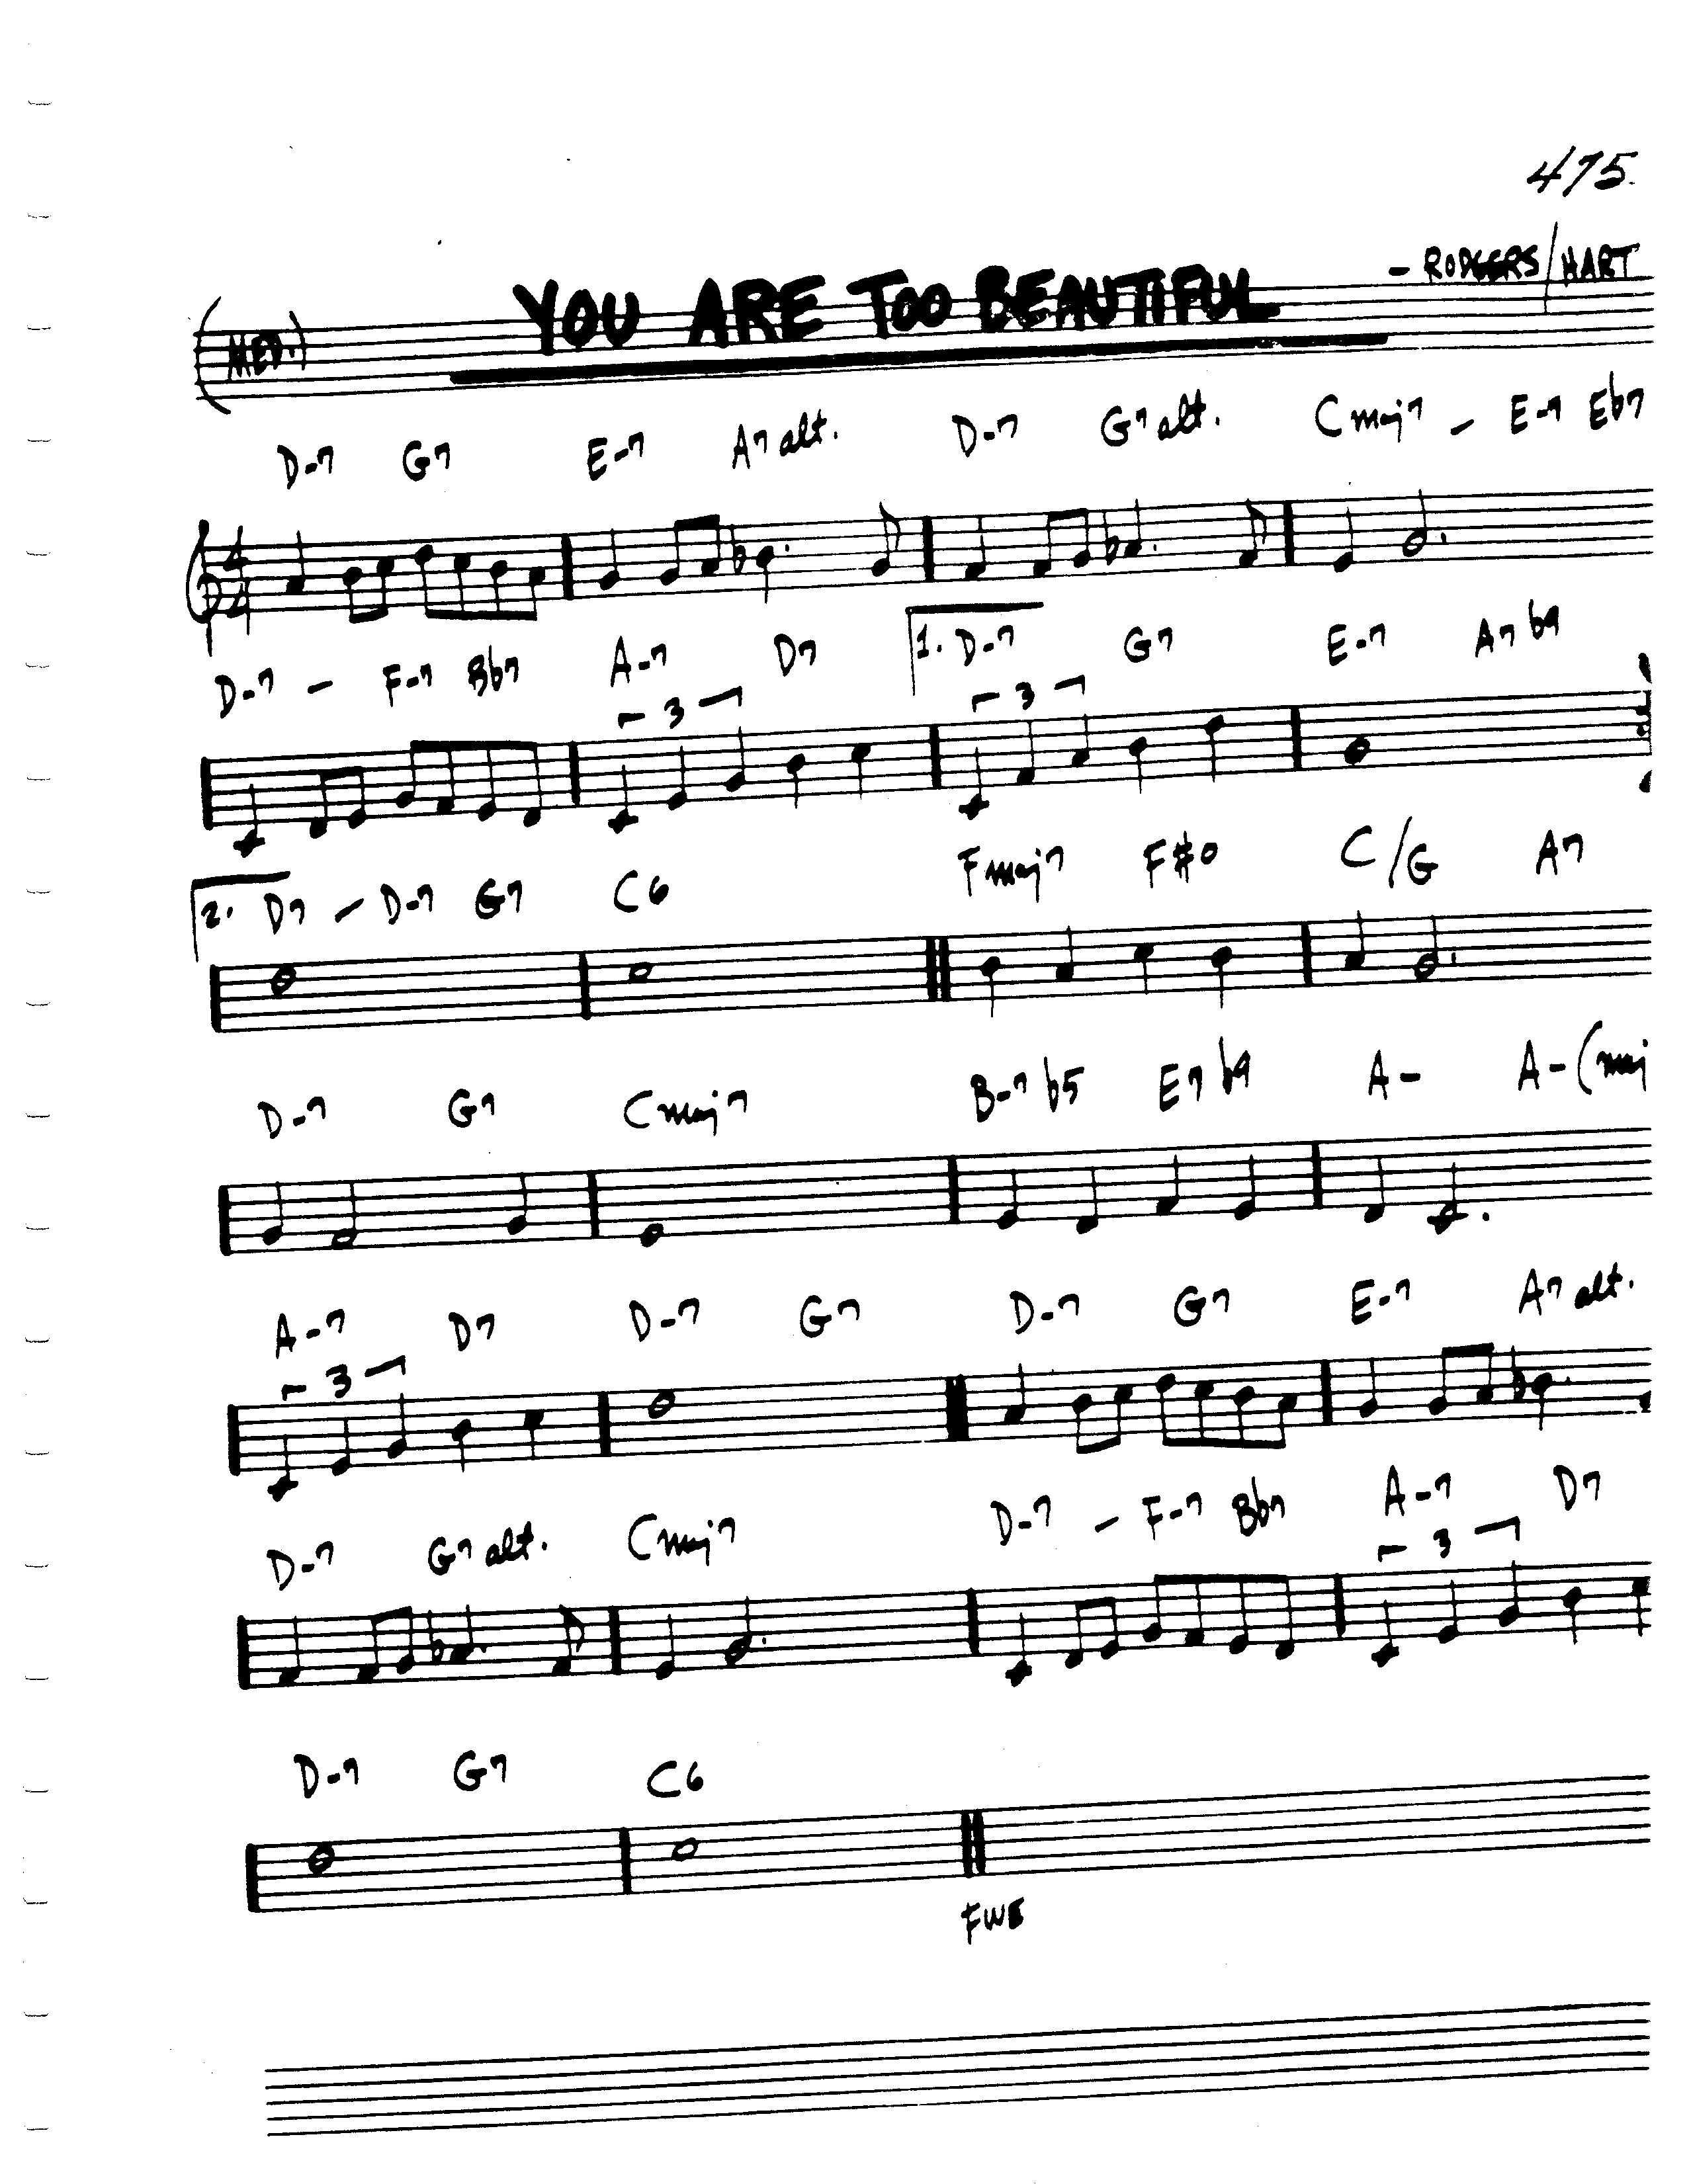 475.
- RODGERS/HART
(MED.) YOU ARE TOO BEAUTIFUL
D-7 G7 E-7 A7 alt. D-7 G7 alt. C maj7 - E-7 Eb7
4
4
D-7 - F-7 Bb7 A-7 D7 1. D-7 G7 E-7 A7 b9
3 3
2. D7 - D-7 G7 C6 F maj7 F#o C/G A7
D-7 G7 C maj7 B-7 b5 E7 b9 A- A-(maj
A-7 D7 D-7 G7 D-7 G7 E-7 A7 alt.
3
D-7 G7 alt. C maj7 D-7 - F-7 Bb7 A-7 D7
3
D-7 G7 C6
FINE